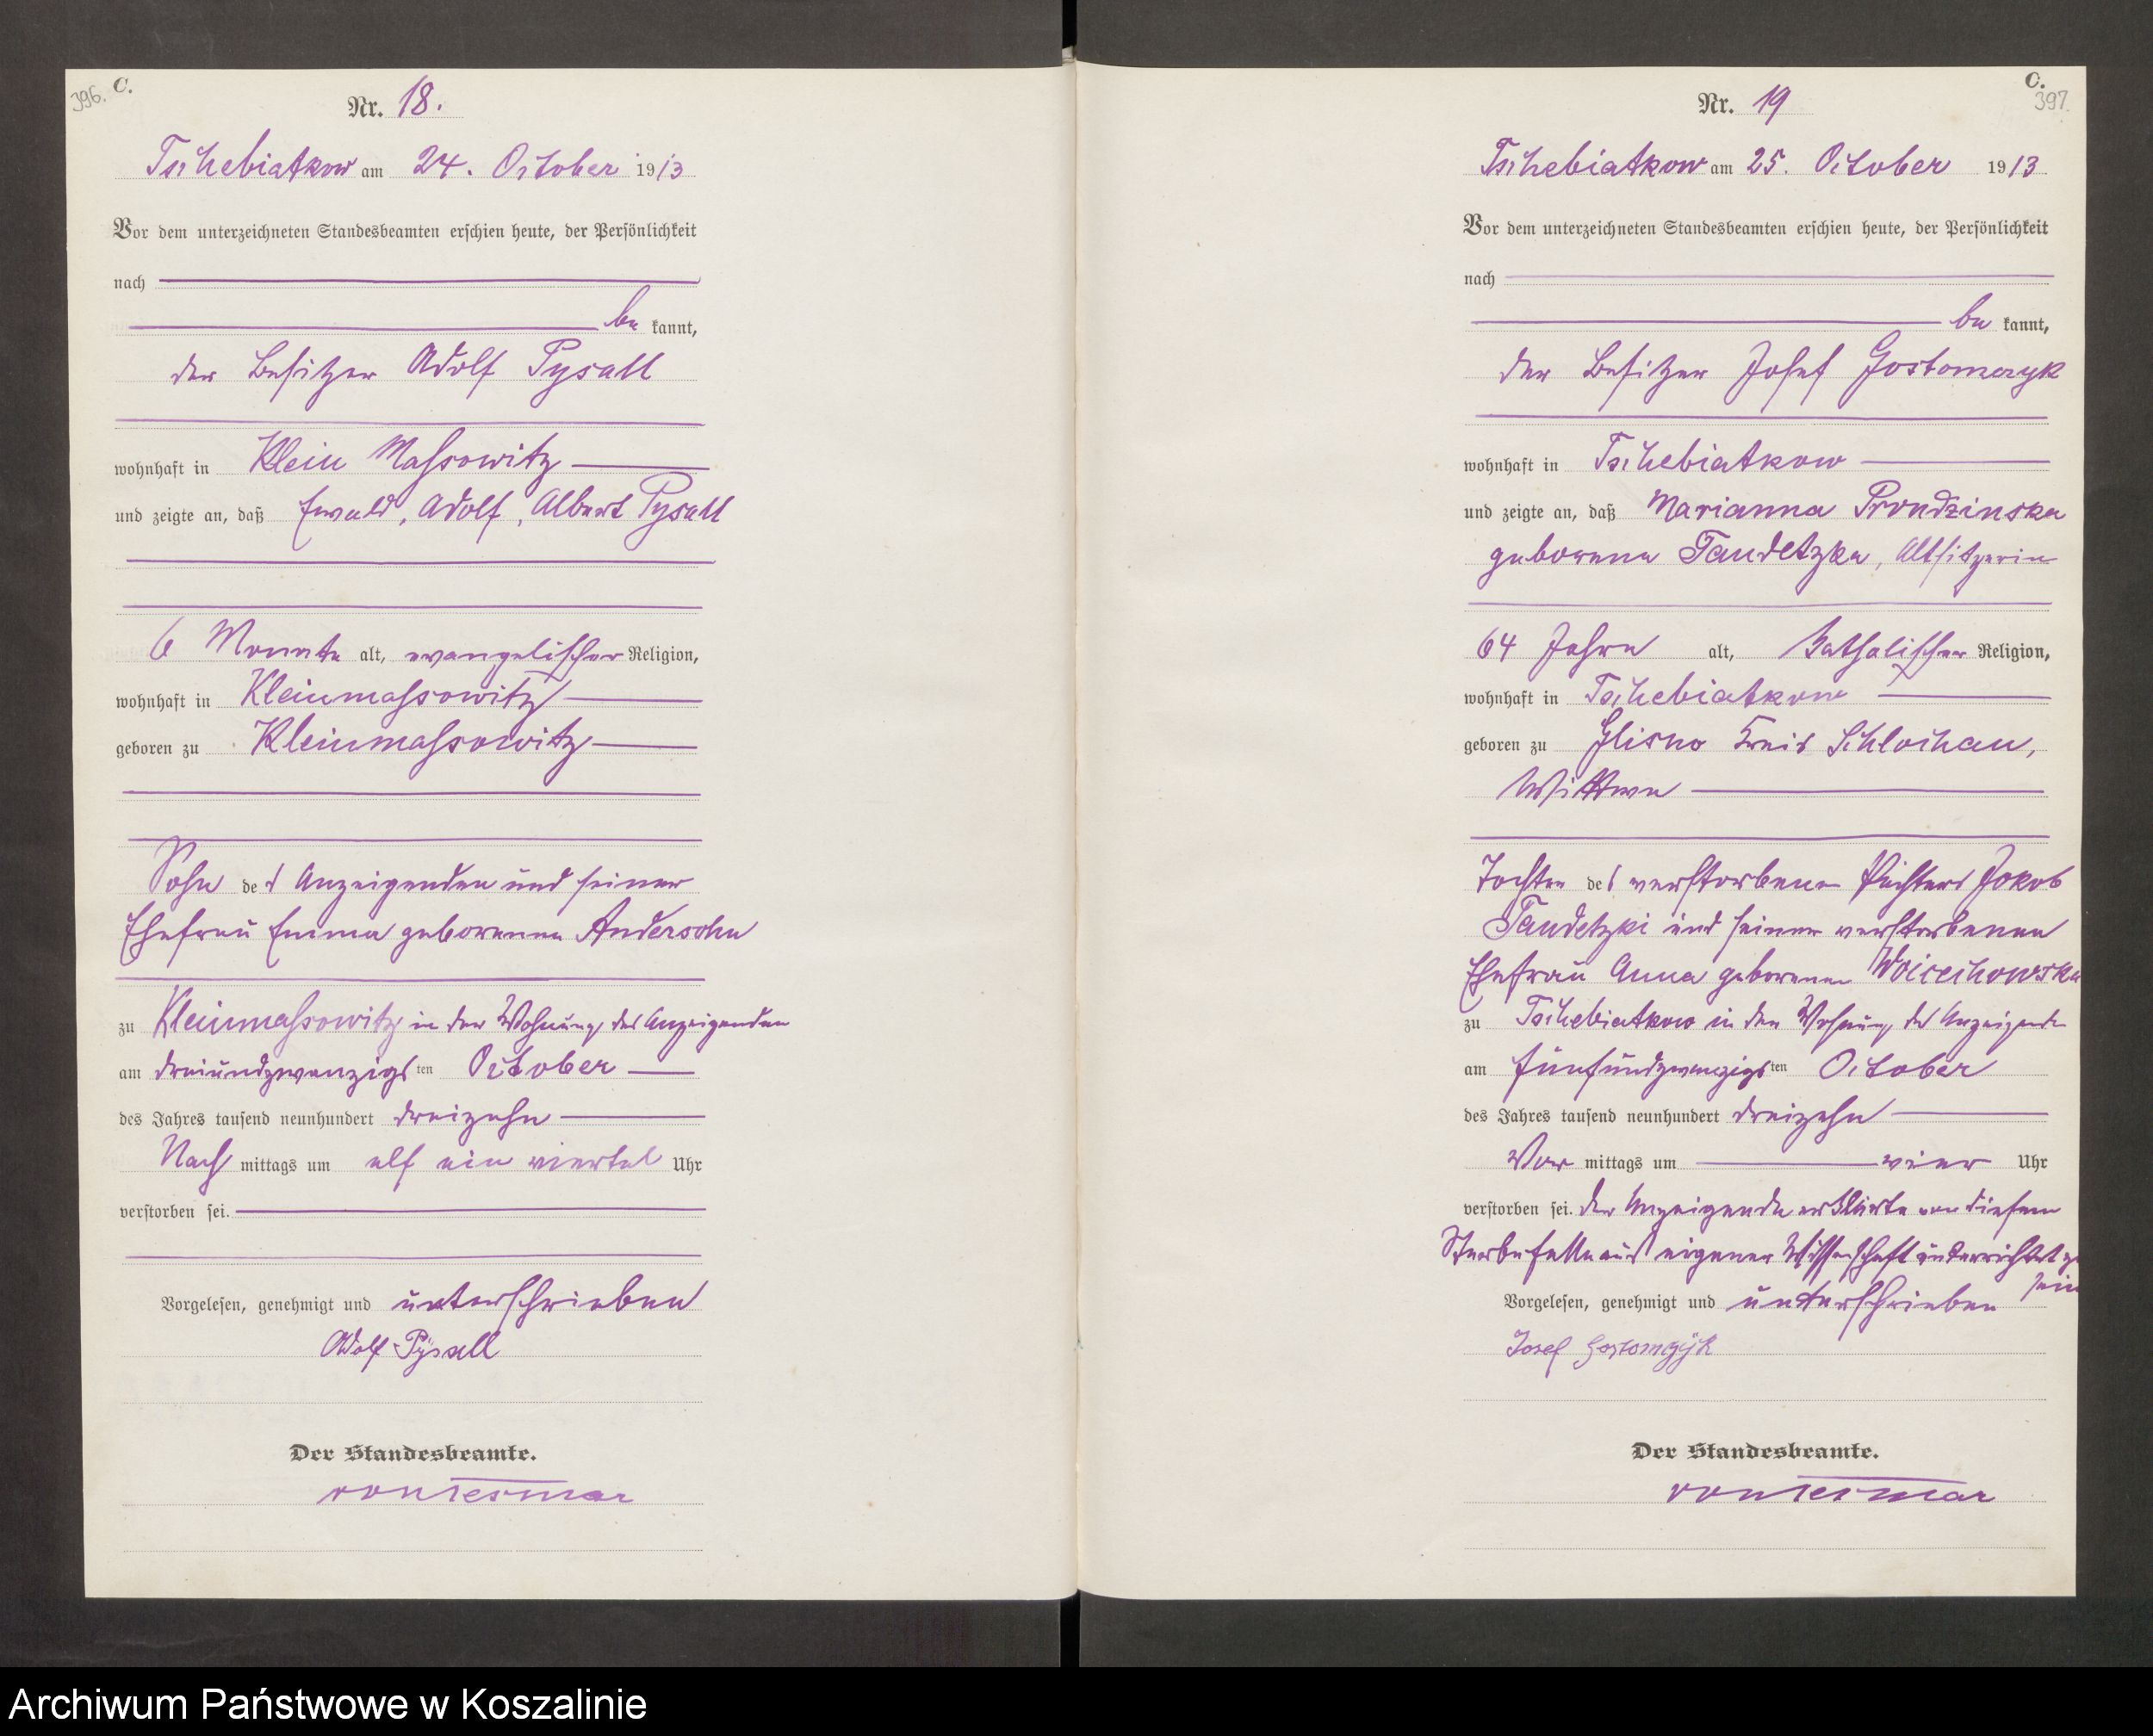 396. C.
Nr. 18.
Tschebiatkow am 24. October 1913
Vor dem unterzeichneten Standesbeamten erschien heute, der Persönlichkeit
nach
be kannt,
der Besitzer Adolf Pysall
wohnhaft in Klein Massowitz
und zeigte an, daß Ewald, Adolf, Albert Pysall
6 Monate alt, evangelischer Religion,
wohnhaft in Kleinmassowitz
geboren zu Kleinmassowitz
Sohn des Anzeigenden und seiner
Ehefrau Emma geborenen Andersohn
zu Kleinmassowitz in der Wohnung des Anzeigenden
am dreiundzwanzigsten October
des Jahres tausend neunhundert dreizehn
Nach mittags um elf ein viertel Uhr
verstorben sei.
Vorgelesen, genehmigt und unterschrieben
Adolf Pysall
Der Standesbeamte.
von Tesmar
C.
397.
Nr. 19
Tschebiatkow am 25. October 1913
Vor dem unterzeichneten Standesbeamten erschien heute, der Persönlichkeit
nach
be kannt,
der Besitzer Josef Gostomczyk
wohnhaft in Tschebiatkow
und zeigte an, daß Marianna Prondzinska
geborene Taudetzka, Altsitzerin
64 Jahre alt, Katholischer Religion,
wohnhaft in Tschebiatkow
geboren zu Glisno Kreis Schlochau,
Wittwe
Tochter des verstorbenen Pächters Jakob
Taudetzki und seiner verstorbenen
Ehefrau Anna geborenen Woicechowska
zu Tschebiatkow in der Wohnung des Anzeigenden
am fünfundzwanzigsten October
des Jahres tausend neunhundert dreizehn
Vor mittags um vier Uhr
verstorben sei. Der Anzeigende erklärte von diesem
Sterbefalle aus eigener Wissenschaft unterrichtet zu
sein
Vorgelesen, genehmigt und unterschrieben
Josef Gostomczyk
Der Standesbeamte.
von Tesmar
Archiwum Państwowe w Koszalinie